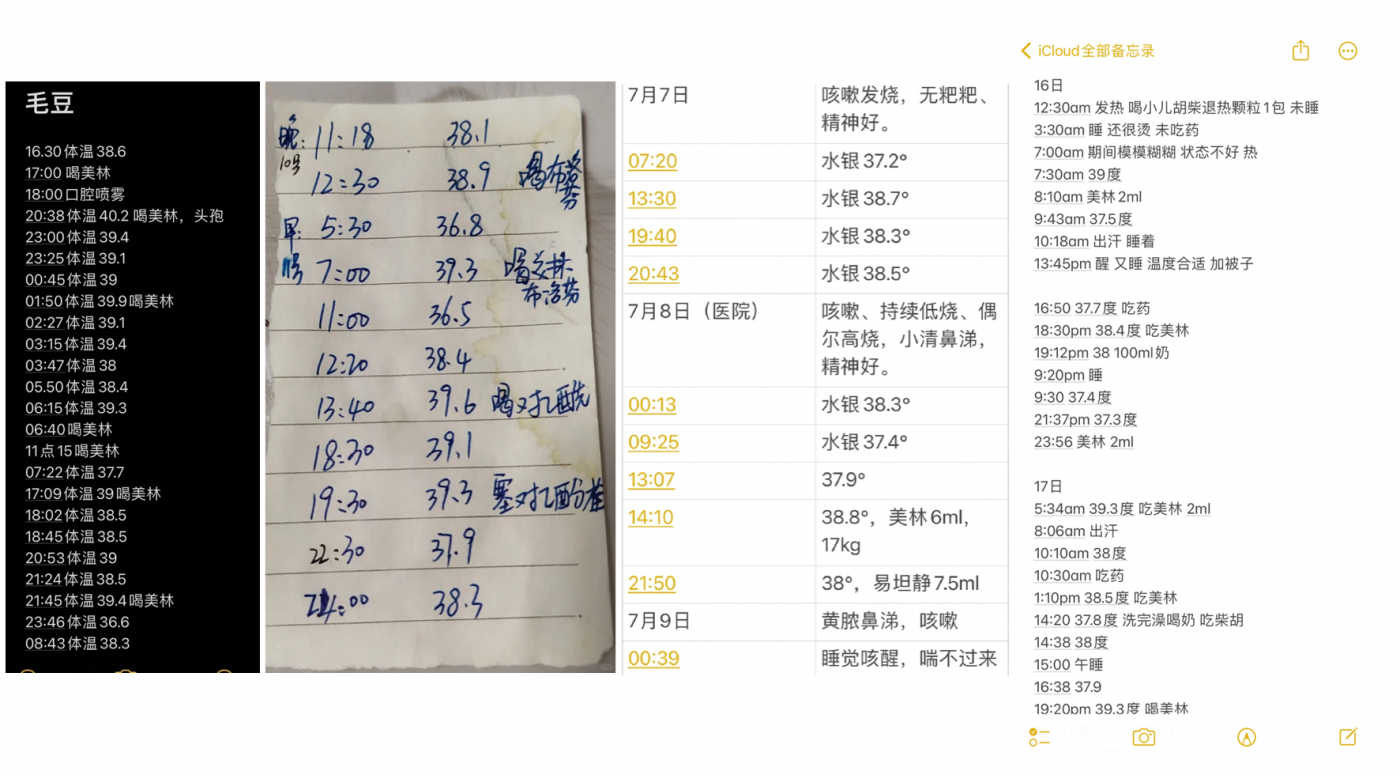 毛豆
16.30体温38.6
17:00 喝美林
18:00口腔喷雾
20:38体温40.2 喝美林，头孢
23:00体温39.4
23:25体温39.1
00:45体温39
01:50体温39.9喝美林
02:27体温39.1
03:15体温39.4
03:47体温38
05.50体温38.4
06:15体温39.3
06:40喝美林
11点15喝美林
07:22体温37.7
17:09体温39喝美林
18:02体温38.5
18:45体温38.5
20:53体温39
21:24体温38.5
21:45体温39.4喝美林
23:46体温36.6
08:43体温38.3
晚: 11:18 38.1
10号 12:30 38.9 喝布洛芬
早: 5:30 36.8
11号 7:00 39.3 喝美林布洛芬
11:00 36.5
12:20 38.4
13:40 39.6 喝对乙酰
18:30 39.1
19:30 39.3 塞对乙酰
22:30 37.9
24:00 38.3
7月7日 咳嗽发烧，无粑粑、
精神好。
07:20 水银37.2°
13:30 水银38.7°
19:40 水银38.3°
20:43 水银38.5°
7月8日（医院） 咳嗽、持续低烧、偶
尔高烧，小清鼻涕，
精神好。
00:13 水银38.3°
09:25 水银37.4°
13:07 37.9°
14:10 38.8°，美林6ml，
17kg
21:50 38°，易坦静7.5ml
7月9日 黄脓鼻涕，咳嗽
00:39 睡觉咳醒，喘不过来
iCloud全部备忘录
16日
12:30am 发热 喝小儿胡柴退热颗粒1包 未睡
3:30am 睡 还很烫 未吃药
7:00am 期间模模糊糊 状态不好 热
7:30am 39度
8:10am 美林2ml
9:43am 37.5度
10:18am 出汗 睡着
13:45pm 醒 又睡 温度合适 加被子
16:50 37.7度 吃药
18:30pm 38.4度 吃美林
19:12pm 38 100ml奶
9:20pm 睡
9:30 37.4度
21:37pm 37.3度
23:56 美林 2ml
17日
5:34am 39.3度 吃美林 2ml
8:06am 出汗
10:10am 38度
10:30am 吃药
1:10pm 38.5度 吃美林
14:20 37.8度 洗完澡喝奶 吃柴胡
14:38 38度
15:00 午睡
16:38 37.9
19:20pm 39.3度 喝美林